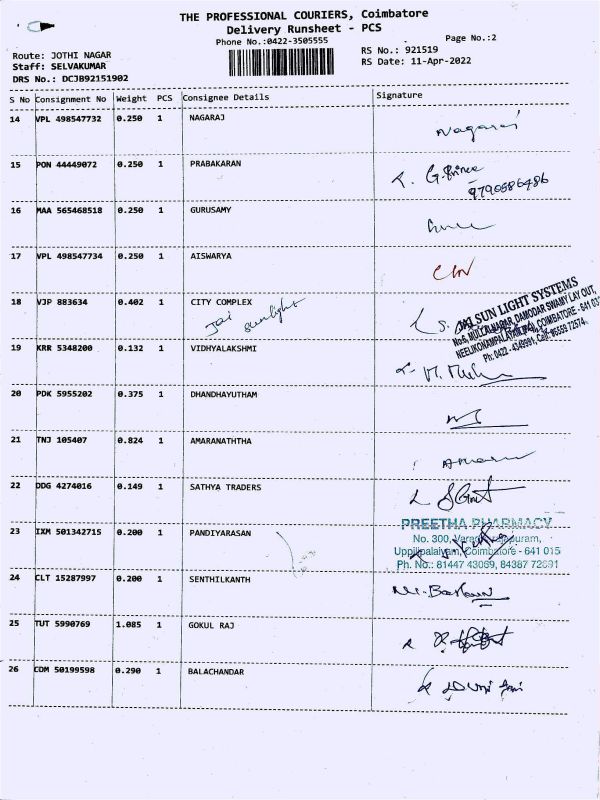 THE PROFESSIONAL COURIERS, Coimbatore
Delivery Runsheet - PCS
Phone No.:0422-3505555
Page No.:2
Route: JOTHI NAGAR
Staff: SELVAKUMAR
DRS No.: DCJB92151902
RS No.: 921519
RS Date: 11-Apr-2022
S No Consignment No Weight PCS Consignee Details Signature
14 VPL 498547732 0.250 1 NAGARAJ Nagaraj
15 PON 44449072 0.250 1 PRABAKARAN
9790586486
16 MAA 565468518 0.250 1 GURUSAMY
17 VPL 498547734 0.250 1 AISWARYA
18 VJP 883634 0.402 1 CITY COMPLEX
Jai sunlight
JAI SUN LIGHT SYSTEMS
DAMODAR SWAMY LAY OUT,
COIMBATORE - 641 03
Ph: 0422 -
19 KRR 5348200 0.132 1 VIDHYALAKSHMI
20 PDK 5955202 0.375 1 DHANDHAYUTHAM
21 TNJ 105407 0.824 1 AMARANATHTHA
22 DDG 4274016 0.149 1 SATHYA TRADERS
PREETHA PHARMACY
23 IXM 501342715 0.200 1 PANDIYARASAN
No. 300,
Uppilipalaiyam, Coimbatore - 641 015
Ph. No.: 81447 43069, 84387
24 CLT 15287997 0.200 1 SENTHILKANTH
25 TUT 5990769 1.085 1 GOKUL RAJ
26 CDM 50199598 0.290 1 BALACHANDAR